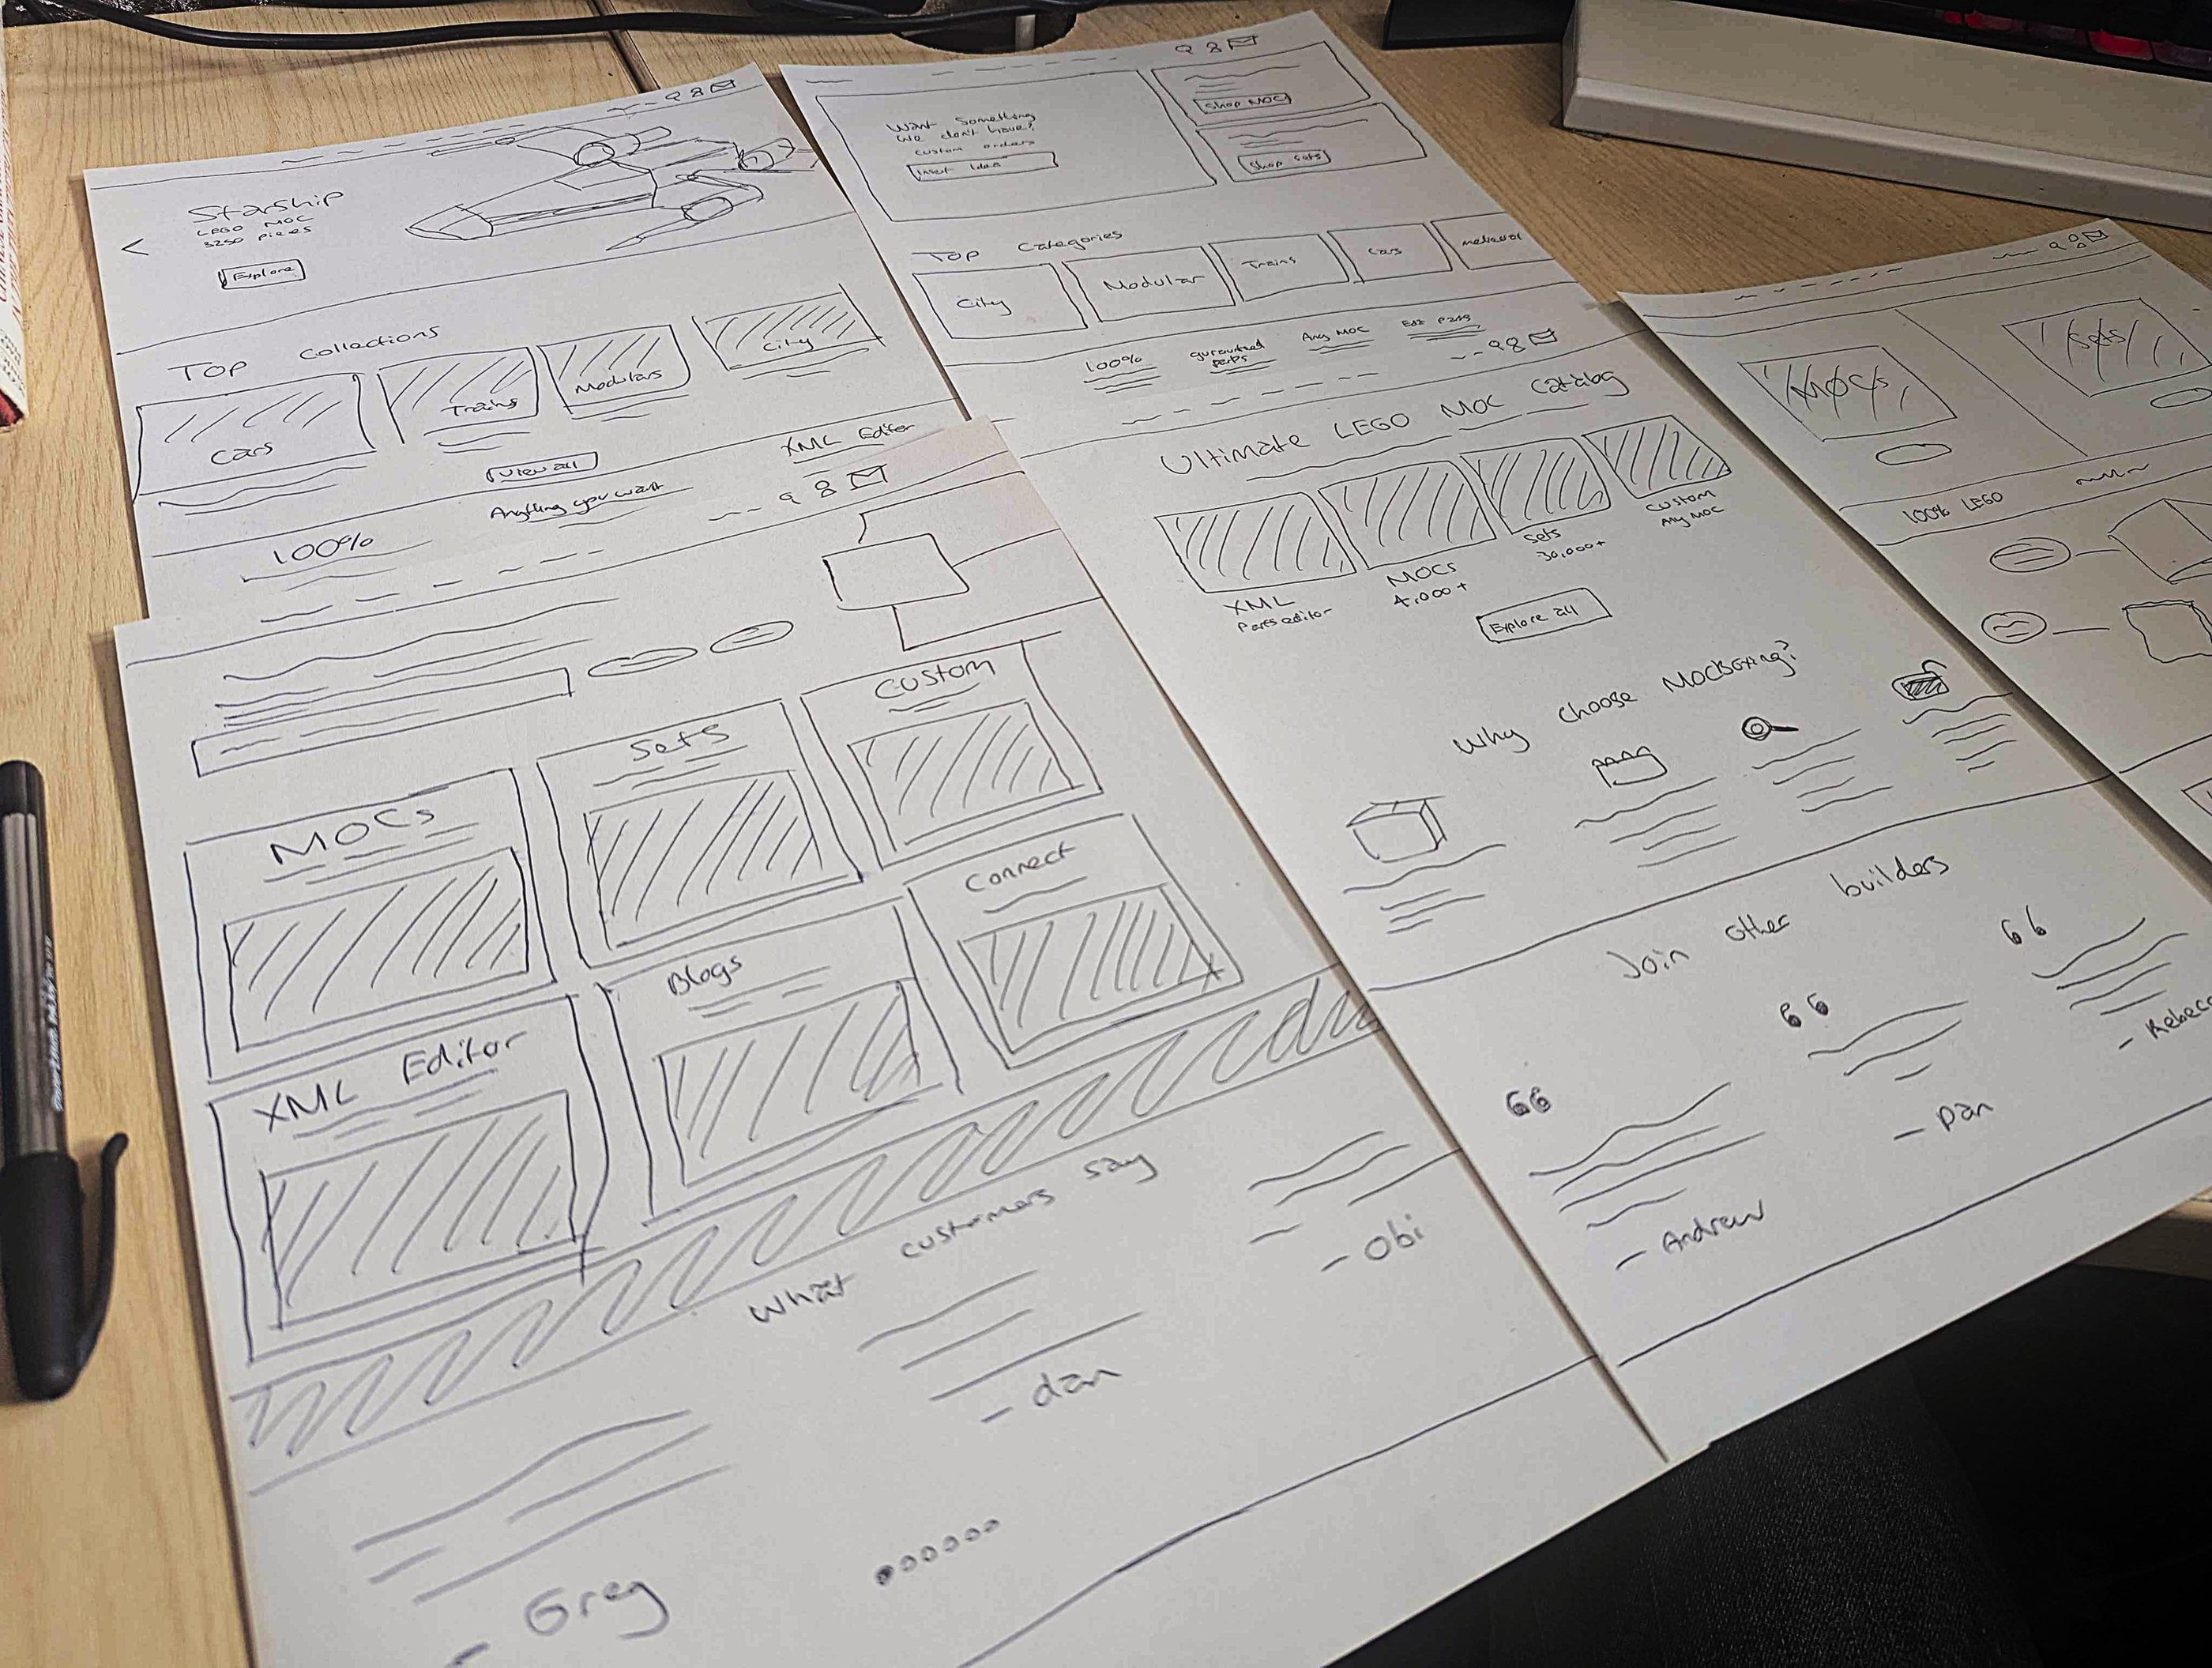 Starship
LEGO MOC
3250 pieces
Explore
Top Collections
Cars
Trains
Modulars
City
View all
100%
Anything you want
XML Editor
Want Something
We don't have?
custom orders
Insert Idea
Shop MOC
Shop sets
Top Categories
City
Modular
Trains
Cars
medieval
100%
Any MOC
Edit Parts
MOCs
Sets
100% LEGO
MOCs
Sets
Custom
XML Editor
Blogs
Connect
What customers say
- Greg
- dan
- Obi
Ultimate LEGO MOC Catalog
XML
Parts editor
MOCs
4,000+
Sets
30,000+
Custom
Any MOC
Explore all
Why choose MocBoxing?
Join other builders
66
- Andrew
66
- Dan
66